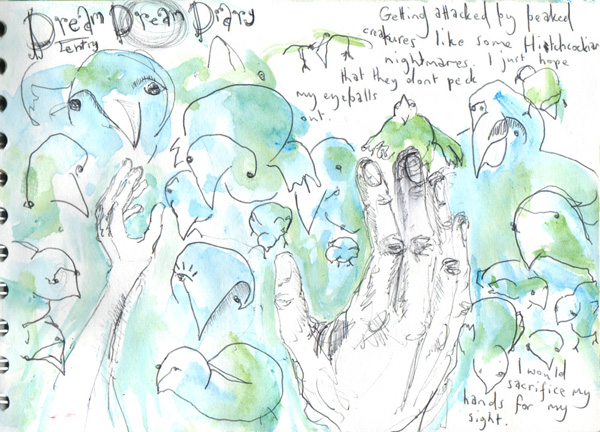 Dream Dream Diary
1 entry
Getting attacked by beaked
creatures like some Hitchcockian
nightmares. I just hope
that they dont peck
my eyeballs
out.
I would
sacrifice my
hands for my
sight.